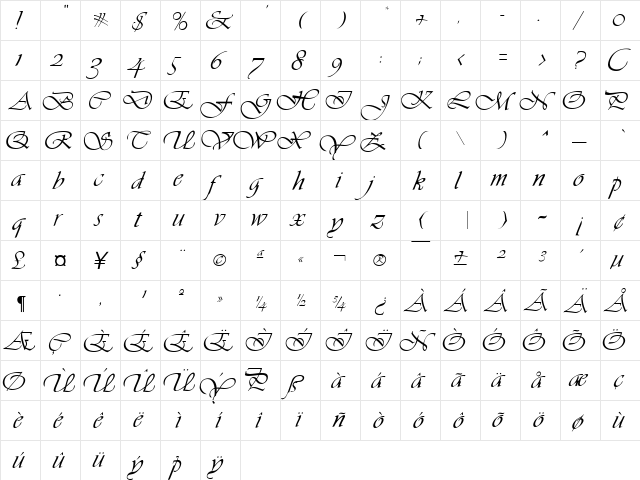 ! " # $ % & ' ( ) * + , - . / 0
1 2 3 4 5 6 7 8 9 : ; < = > ? C
A B C D E F G H I J K L M N O P
Q R S T U V W X Y Z ( \ ) ^ _ `
a b c d e f g h i j k l m n o p
q r s t u v w x y z ( | ) ~ ¡ ¢
£ ¤ ¥ § ¨ © ª « ¬ ® ¯ ± ² ³ ´ µ
¶ · ¸ ¹ º » ¼ ½ ¾ ¿ À Á Â Ã Ä Å
Æ Ç È É Ê Ë Ì Í Î Ï Ñ Ò Ó Ô Õ Ö
Ø Ù Ú Û Ü Ý Þ ß à á â ã ä å æ ç
è é ê ë ì í î ï ñ ò ó ô õ ö ø ù
ú û ü ý þ ÿ